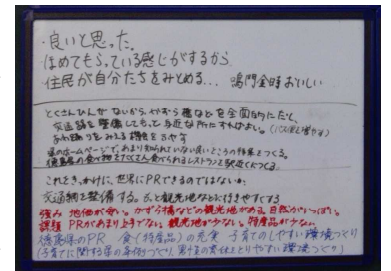 ・良いと思った。
・ほめてもらっている感じがするから
・住民が自分たちをみとめる… 鳴門金時おいしい
とくさんひんが ないから、かずら橋などを全面的にだし、
交通網を整備してもっと身近な所にすればよい。(バス停を増やす)
あわおどりをみえる機会をふやす
県のホームページで、あまり知られていない良いところの特集をつくる。
徳島県の食べ物をたくさん食べられるレストランを駅近くにつくる
これをきっかけに、世界にPRできるのではないか。
交通網を整備する。 観光地などに行きやすくする
強み 地価が安い。かずら橋などの観光地がある。自然がいっぱい。
課題 PRがあまり上手でない。観光地が少ない。特産品が少ない
徳島県のPR 食(特産品)の充実 子育てのしやすい環境づくり
(子育てに関する